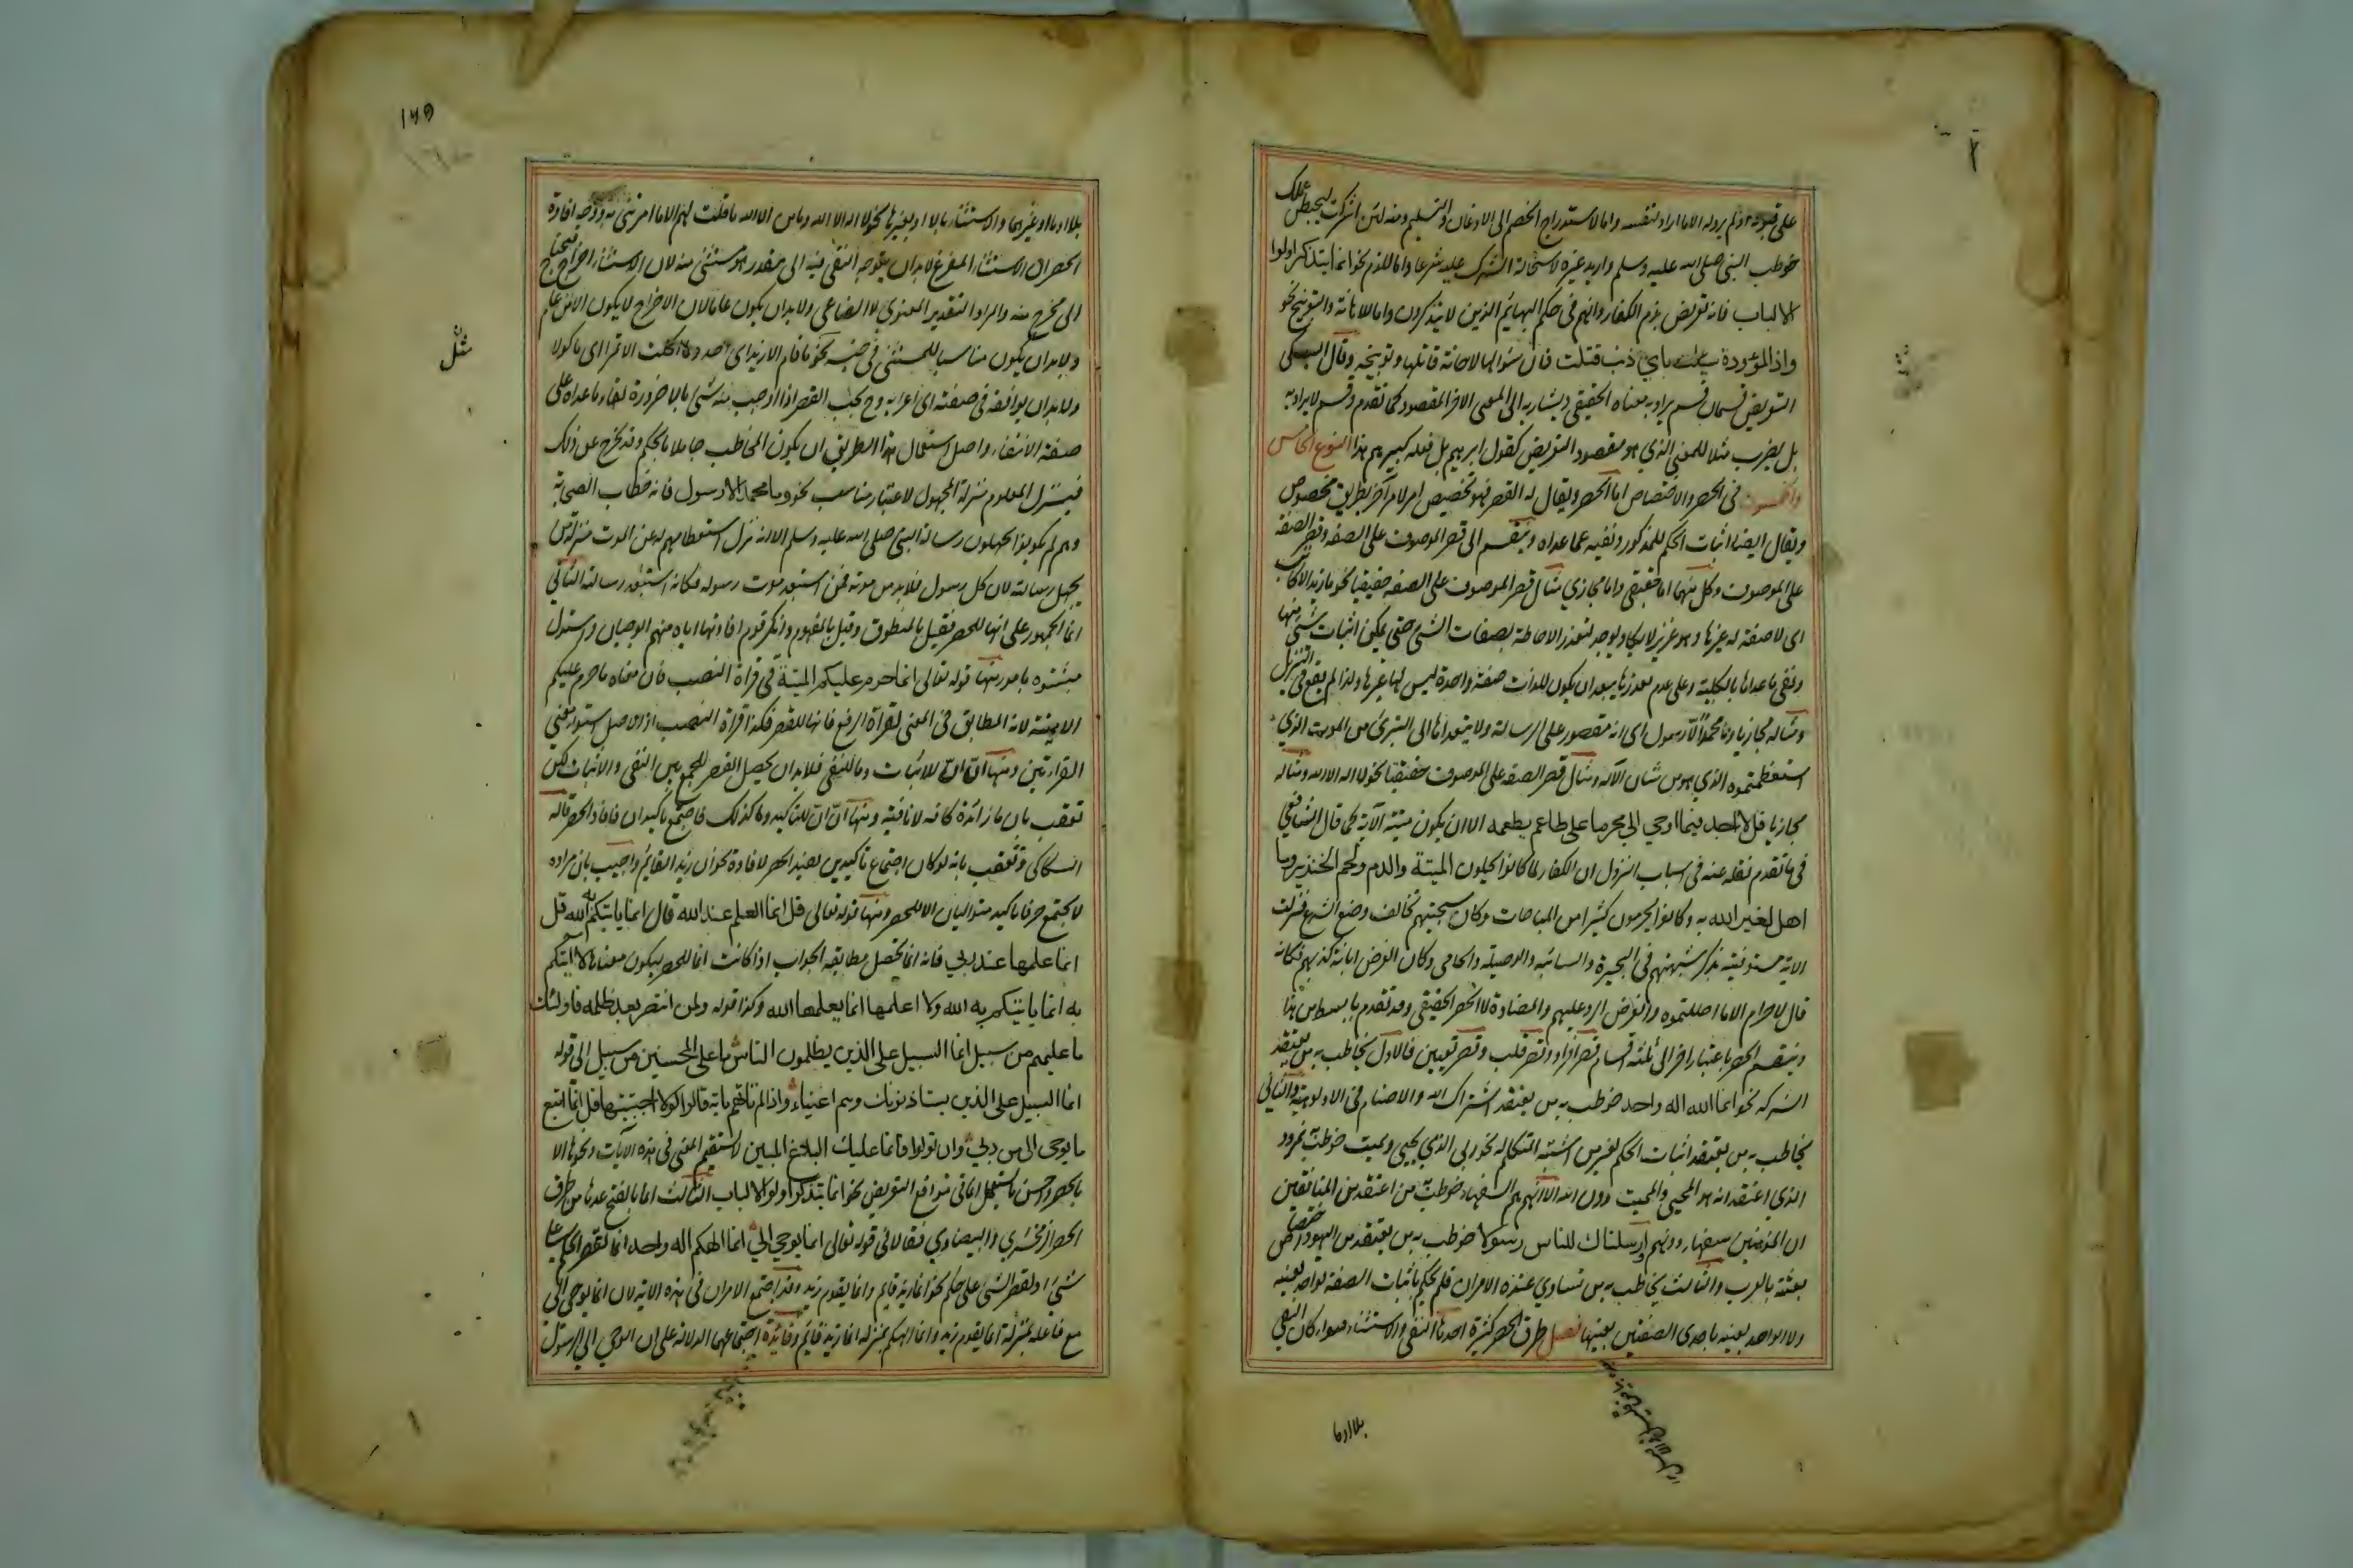 على قبوله اذ لم يرد له الا ما اراد لنفسه واما لاستدراج الخصم الى الاذعان والتسليم ومنه لئن اشركت ليحبطن عملك
خوطب النبي صلى الله عليه وسلم واريد غيره لاستحالة الشرك عليه شرعا واما للذم نحو انما يتذكر اولوا
الالباب فانه تعريض بذم الكفار وانهم في حكم البهائم الذين لا يتذكرون واما للاهانة والتوبيخ نحو
واذا المؤودة سئلت باي ذنب قتلت فان سؤالها لاهانة قاتلها وتوبيخه وقال السبكي
التعريض قسمان قسم يراد به معناه الحقيقي ويشار به الى المعنى الاخر المقصود كما تقدم وقسم لا يراد به
بل يضرب مثلا للمعنى الذي هو مقصود التعريض كقول ابرهيم بل فعله كبيرهم هذا النوع الخامس
والخمسون في الحصر والاختصاص اما الحصر ويقال له القصر فهو تخصيص امر لامر اخر بطريق مخصوص
ويقال ايضا اثبات الحكم للمذكور ونفيه عما عداه وينقسم الى قصر الموصوف على الصفة وقصر الصفة
على الموصوف وكل منهما اما حقيقي واما مجازي مثال قصر الموصوف على الصفة حقيقيا نحو ما زيد الا كاتب
اى لا صفة له غيرها وهو عزيز لا يكاد يوجد لتعذر الاحاطة بصفات الشئ حتى يمكن اثبات شئ منها
ونفى ما عداها بالكلية وعلى عدم تعذرها يبعد ان يكون للذات صفة واحدة ليس لها غيرها ولذا لم يقع في التنزيل
ومثاله مجازيا وما محمد الا رسول اى انه مقصور على الرسالة ولا يتعداها الى التبرئ من الموت الذي
استعظمتموه الذي هو من شان الآله ومثال قصر الصفة على الموصوف حقيقيا نحو لا اله الا الله ومثاله
مجازيا قل لا اجد فيما اوحي الي محرما على طاعم يطعمه الا ان يكون ميتة الآية كما قال الشافعي
في ما تقدم نقله عنه في اسباب النزول ان الكفار لما كانوا يحلون الميتة والدم ولحم الخنزير وما
اهل لغير الله به وكانوا يحرمون كثيرا من المباحات وكان سجيتهم تخالف وضع الشرع فنزلت
الاية مسوقة بذكر شبههم في البحيرة والسائبة والوصيلة والحامي وكان الغرض ابانة كذبهم فكانه
قال لا حرام الا ما احللتموه والغرض الرد عليهم والمضادة لا الحصر الحقيقي وقد تقدم بابسط من هذا
وينقسم الحصر باعتبار اخر الى ثلثة اقسام قصر افراد وقصر قلب وقصر تعيين فالاول يخاطب به من يعتقد
الشركة نحو انما الله اله واحد خوطب به من يعتقد اشتراك الله والاصنام في الالوهية والثاني
يخاطب به من يعتقد اثبات الحكم لغير من اثبته المتكلم له نحو ربي الذي يحيي ويميت خوطب به نمرود
الذي اعتقد انه هو المحيي والمميت دون الله الا انهم هم السفهاء خوطب به من اعتقد من المنافقين
ان المؤمنين سفهاء دونهم وارسلناك للناس رسولا خوطب به من يعتقد من اليهود اختصاص
بعثته بالعرب والثالث يخاطب به من تساوى عنده الامران فلم يحكم باثبات الصفة لواحد بعينه
ولا لواحد بعينه باحدى الصفتين بعينها فصل طرق الحصر كثيرة احدها النفي والاستثناء سواء كان النفي
بلا او ما
١٥٩
بلا او ما او غيرهما والاستثناء بالا او بغيرها نحو لا اله الا الله وما من اله الا الله ما قلت لهم الا ما امرتني به ووجه افادة
الحصر ان الاستثناء المفرغ لا بد ان يتوجه النفي فيه الى مقدر هو مستثنى منه لان الاستثناء اخراج فيحتاج
الى مخرج منه والمراد التقدير المعنوي لا الصناعي ولا بد ان يكون عاما لان الاخراج لا يكون الا من عام
ولا بد ان يكون مناسبا للمستثنى في جنسه نحو ما قام الا زيد اى احد ولا اكلت الا تمرا اى ماكولا
مثل
ولا بد ان يوافقه في صفته اى اعرابه وح يجب القصر اذا اوجب منه شئ بالا ضرورة لبقاء ما عداه على
صفة الانتفاء واصل استعمال هذا الطريق ان يكون المخاطب جاهلا بالحكم وقد يخرج عن ذلك
فينزل المعلوم منزلة المجهول لاعتبار مناسب نحو وما محمد الا رسول فانه خطاب للصحابة
وهم لم يكونوا يجهلون رسالة النبي صلى الله عليه وسلم الا انه نزل استعظامهم له عن الموت منزلة من
يجهل رسالته لان كل رسول فلا بد من موته فمن استبعد موت رسوله فكانه استبعد رسالته الثاني
انما الجمهور على انها للحصر فقيل بالمنطوق وقيل بالمفهوم وانكر قوم افادتها اياه منهم ابو حيان واستدل
مثبتوه بامور منها قوله تعالى انما حرم عليكم الميتة في قراة النصب فان معناه ما حرم عليكم
الا الميتة لانه المطابق في المعنى لقراءة الرفع فانها للقصر فكذا قراءة النصب اذ الاصل استواء معنى
القراءتين ومنها ان ان للاثبات وما للنفي فلا بد ان يحصل القصر للجمع بين النفي والاثبات لكن
تعقب بان ما زائدة كافة لا نافية ومنها ان ان للتاكيد وما كذلك فاجتمع تاكيدان فافاد الحصر قاله
السكاكي وتعقب بانه لو كان اجتماع تاكيدين يفيد الحصر لافاده نحو ان زيدا لقائم واجيب بان مراده
لا يجتمع حرفا تاكيد متواليان الا للحصر ومنها قوله تعالى قل انما العلم عند الله قال انما ياتيكم به الله قل
انما علمها عند ربي فانه انما تحصل مطابقة الجواب اذا كانت انما للحصر ليكون معناه لا اتيكم
به انما ياتيكم به الله ولا اعلمها انما يعلمها الله وكذا قوله ولمن انتصر بعد ظلمه فاولئك
ما عليهم من سبيل انما السبيل على الذين يظلمون الناس ما على المحسنين من سبيل الى قوله
انما السبيل على الذين يستاذنونك وهم اغنياء واذا لم تاتهم باية قالوا لولا اجتبيتها قل انما اتبع
ما يوحى الى من ربي وان تولوا فانما عليك البلاغ المبين لا يستقيم المعنى في هذه الآيات ونحوها الا
بالحصر واحسن ما يستعمل انما في مواقع التعريض نحو انما يتذكر اولوا الالباب الثالث انما بالفتح عدها من طرق
الحصر الزمخشري والبيضاوي فقالا في قوله تعالى انما يوحي الي انما الهكم اله واحد انما لقصر الحكم على
شئ او لقصر الشئ على حكم نحو انما زيد قايم وانما يقوم زيد وقد اجتمع الامران في هذه الاية لان انما يوحى الي
مع فاعله بمنزلة انما يقوم زيد وانما الهكم بمنزلة انما زيد قايم وفائدة اجتماعهما الدلالة على ان الوحي الى الرسول